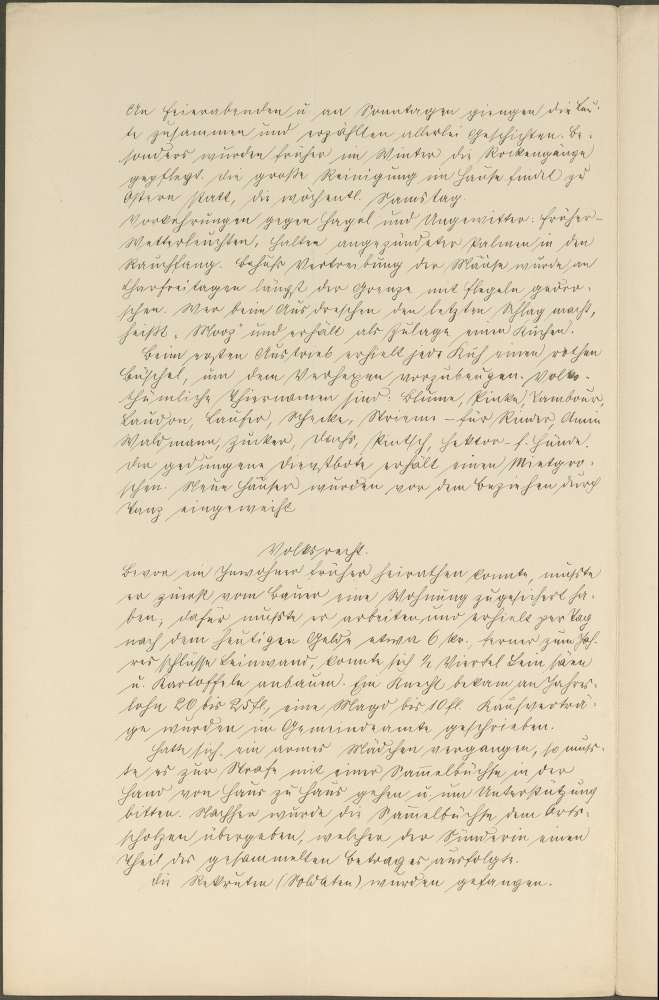 An Feierabenden u. an Sonntagen giengen die Leu-
te zusammen und erzählten allerlei Geschichten. Be-
sonders wurden früher im Winter die Rockengänge
gepflegt. Die große Reinigung im Hause findet zu
Ostern statt, die wöchentl. Samstag.
Vorkehrungen gegen Hagel und Ungewitter: früher-
Wetterleuchten, halten angezündeter Palmen in den
Rauchfang. Behufs Vertreibung der Mäuse wurde an
Charfreitagen längst der Grenze mit Flegeln gedro-
schen. Wer beim Ausdreschen den letzten Schlag macht,
heißt „Mooz“ und erhält als Zulage einen Kuchen.
Beim ersten Austrieb erhielt jede Kuh einen rothen
Büschel, um dem Verhexen vorzubeugen. Volks-
thümliche Thiernamen sind: Blüme, Pinke, Tambour,
Laudon, Laufer, Schecke, Strieme - für Rinder, Amin
Waldmann, Zucker, Dachs, Hektor - f. Hunde.
Der gedungene Dienstbote erhält einen Mietgro-
schen. Neue Häuser wurden vor dem Beziehen durch
Tanz eingeweiht
Volksrecht.
Bevor ein Inwohner früher heirathen konnte, mußte
er zuerst vom Bauer eine Wohnung zugesichert ha-
ben, dafür mußte er arbeiten und erhielt per Tag
nach dem heutigen Gelde etwa 6 kr., ferner zum Jah-
resschlusse Leinwand, konnte sich ½ Viertel Lein säen
u. Kartoffeln anbauen. Ein Knecht bekam an Jahres-
lohn 20 bis 25 fl, eine Magd bis 10 fl. Kaufverträ-
ge wurden im Gemeindeamte geschrieben.
Hatte sich ein armes Mädchen vergangen, so muß-
te es zur Strafe mit einer Sam̅elbüchse in der
Hand von Haus zu Haus gehen u. um Unterstützung
bitten. Nachher wurde die Sam̅elbüchse dem Orts-
scholzen übergeben, welcher der Sünderin einen
Theil des gesammelten Betrages ausfolgte.
Die Rekruten (Soldaten) wurden gefangen.